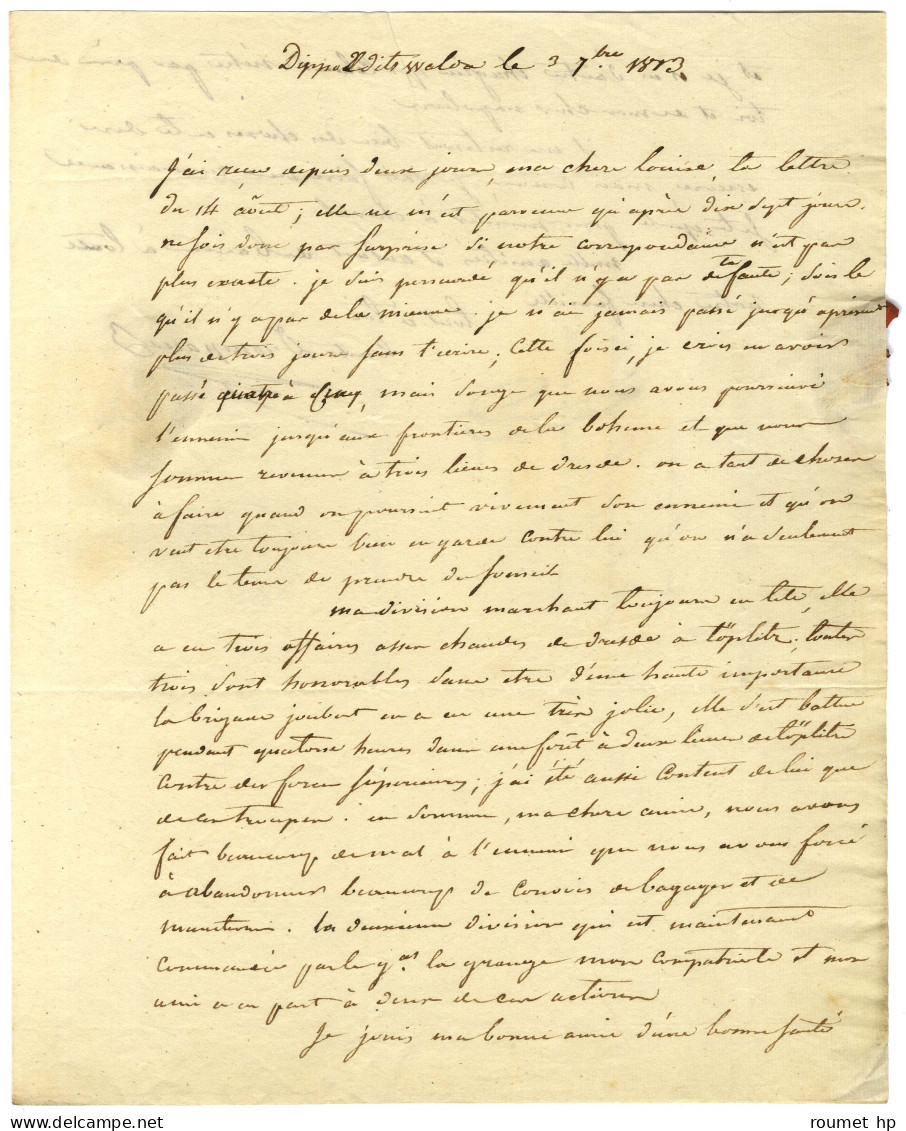 Dippoldits walda le 3 7bre 1813
J'ai recu depuis deux jours, ma chere louise, ta lettre
du 14 août; elle ne m'est parvenue qu'après dix sept jours.
ne sois donc pas surprise si notre correspondance n'est pas
plus exacte. je suis persuadé qu'il n'y a pas de ta faute; sois le
qu'il n'y a pas de la mienne. je n'ai jamais passé jusqu'à présent
plus de trois jours sans t'ecrire; cette fois ci, je crois en avoir
passé quatre à cinq, mais songe que nous avons poursuivi
l'ennemi jusqu'aux frontières de la boheme et que nous
sommes revenus à trois lieues de dresde. on a tant de choses
à faire quand on poursuit vivement son ennemi et qu'on
veut etre toujours bien en garde contre lui qu'on n'a seulement
pas le tems de prendre du sommeil
ma division marchant toujours en tete, elle
a eu trois affaires assez chaudes de dresde à töplitz; toutes
trois sont honorables sans etre d'une haute importance
la brigade joubert en a eu une très jolie, elle s'est battue
pendant quatorse heures dans une forêt à deux lieues de töplitz
contre des forces supérieures; j'ai été aussi content de lui que
de ses troupes. en somme, ma chere amie, nous avons
fait beaucoup de mal à l'ennemi que nous avons forcé
à abandonner beaucoup de convois de bagages et de
munitions. la deuxieme division qui est maintenant
commandée par le gal la grange mon compatriote et mon
ami a eu part à deux de ces actions
Je jouis ma bonne amie d'une bonne santé
delcampe.net
roumet hp